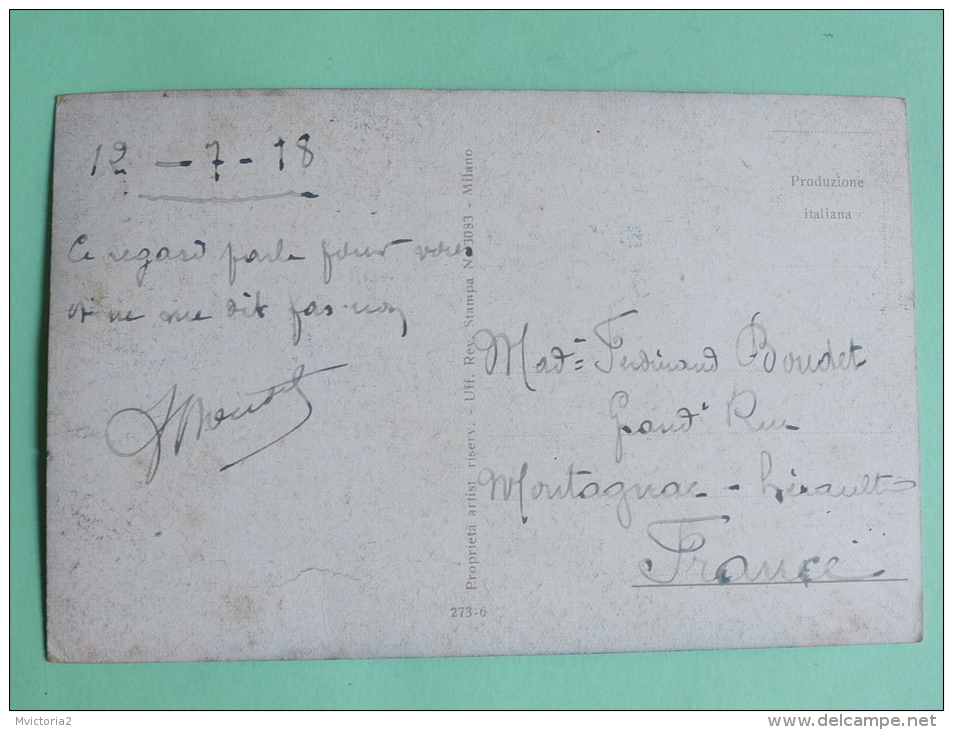 12 - 7 - 18
Ce regard parle pour vous
et ne me dit pas non
Proprietà artist riserv. - Uff. Rev. Stampa N. 3083 - Milano
273-6
Produzione
italiana
Mad= Ferdinand Boudet
Grand' Rue
Montagnac - Hérault
France
Mvictoria2
www.delcampe.net